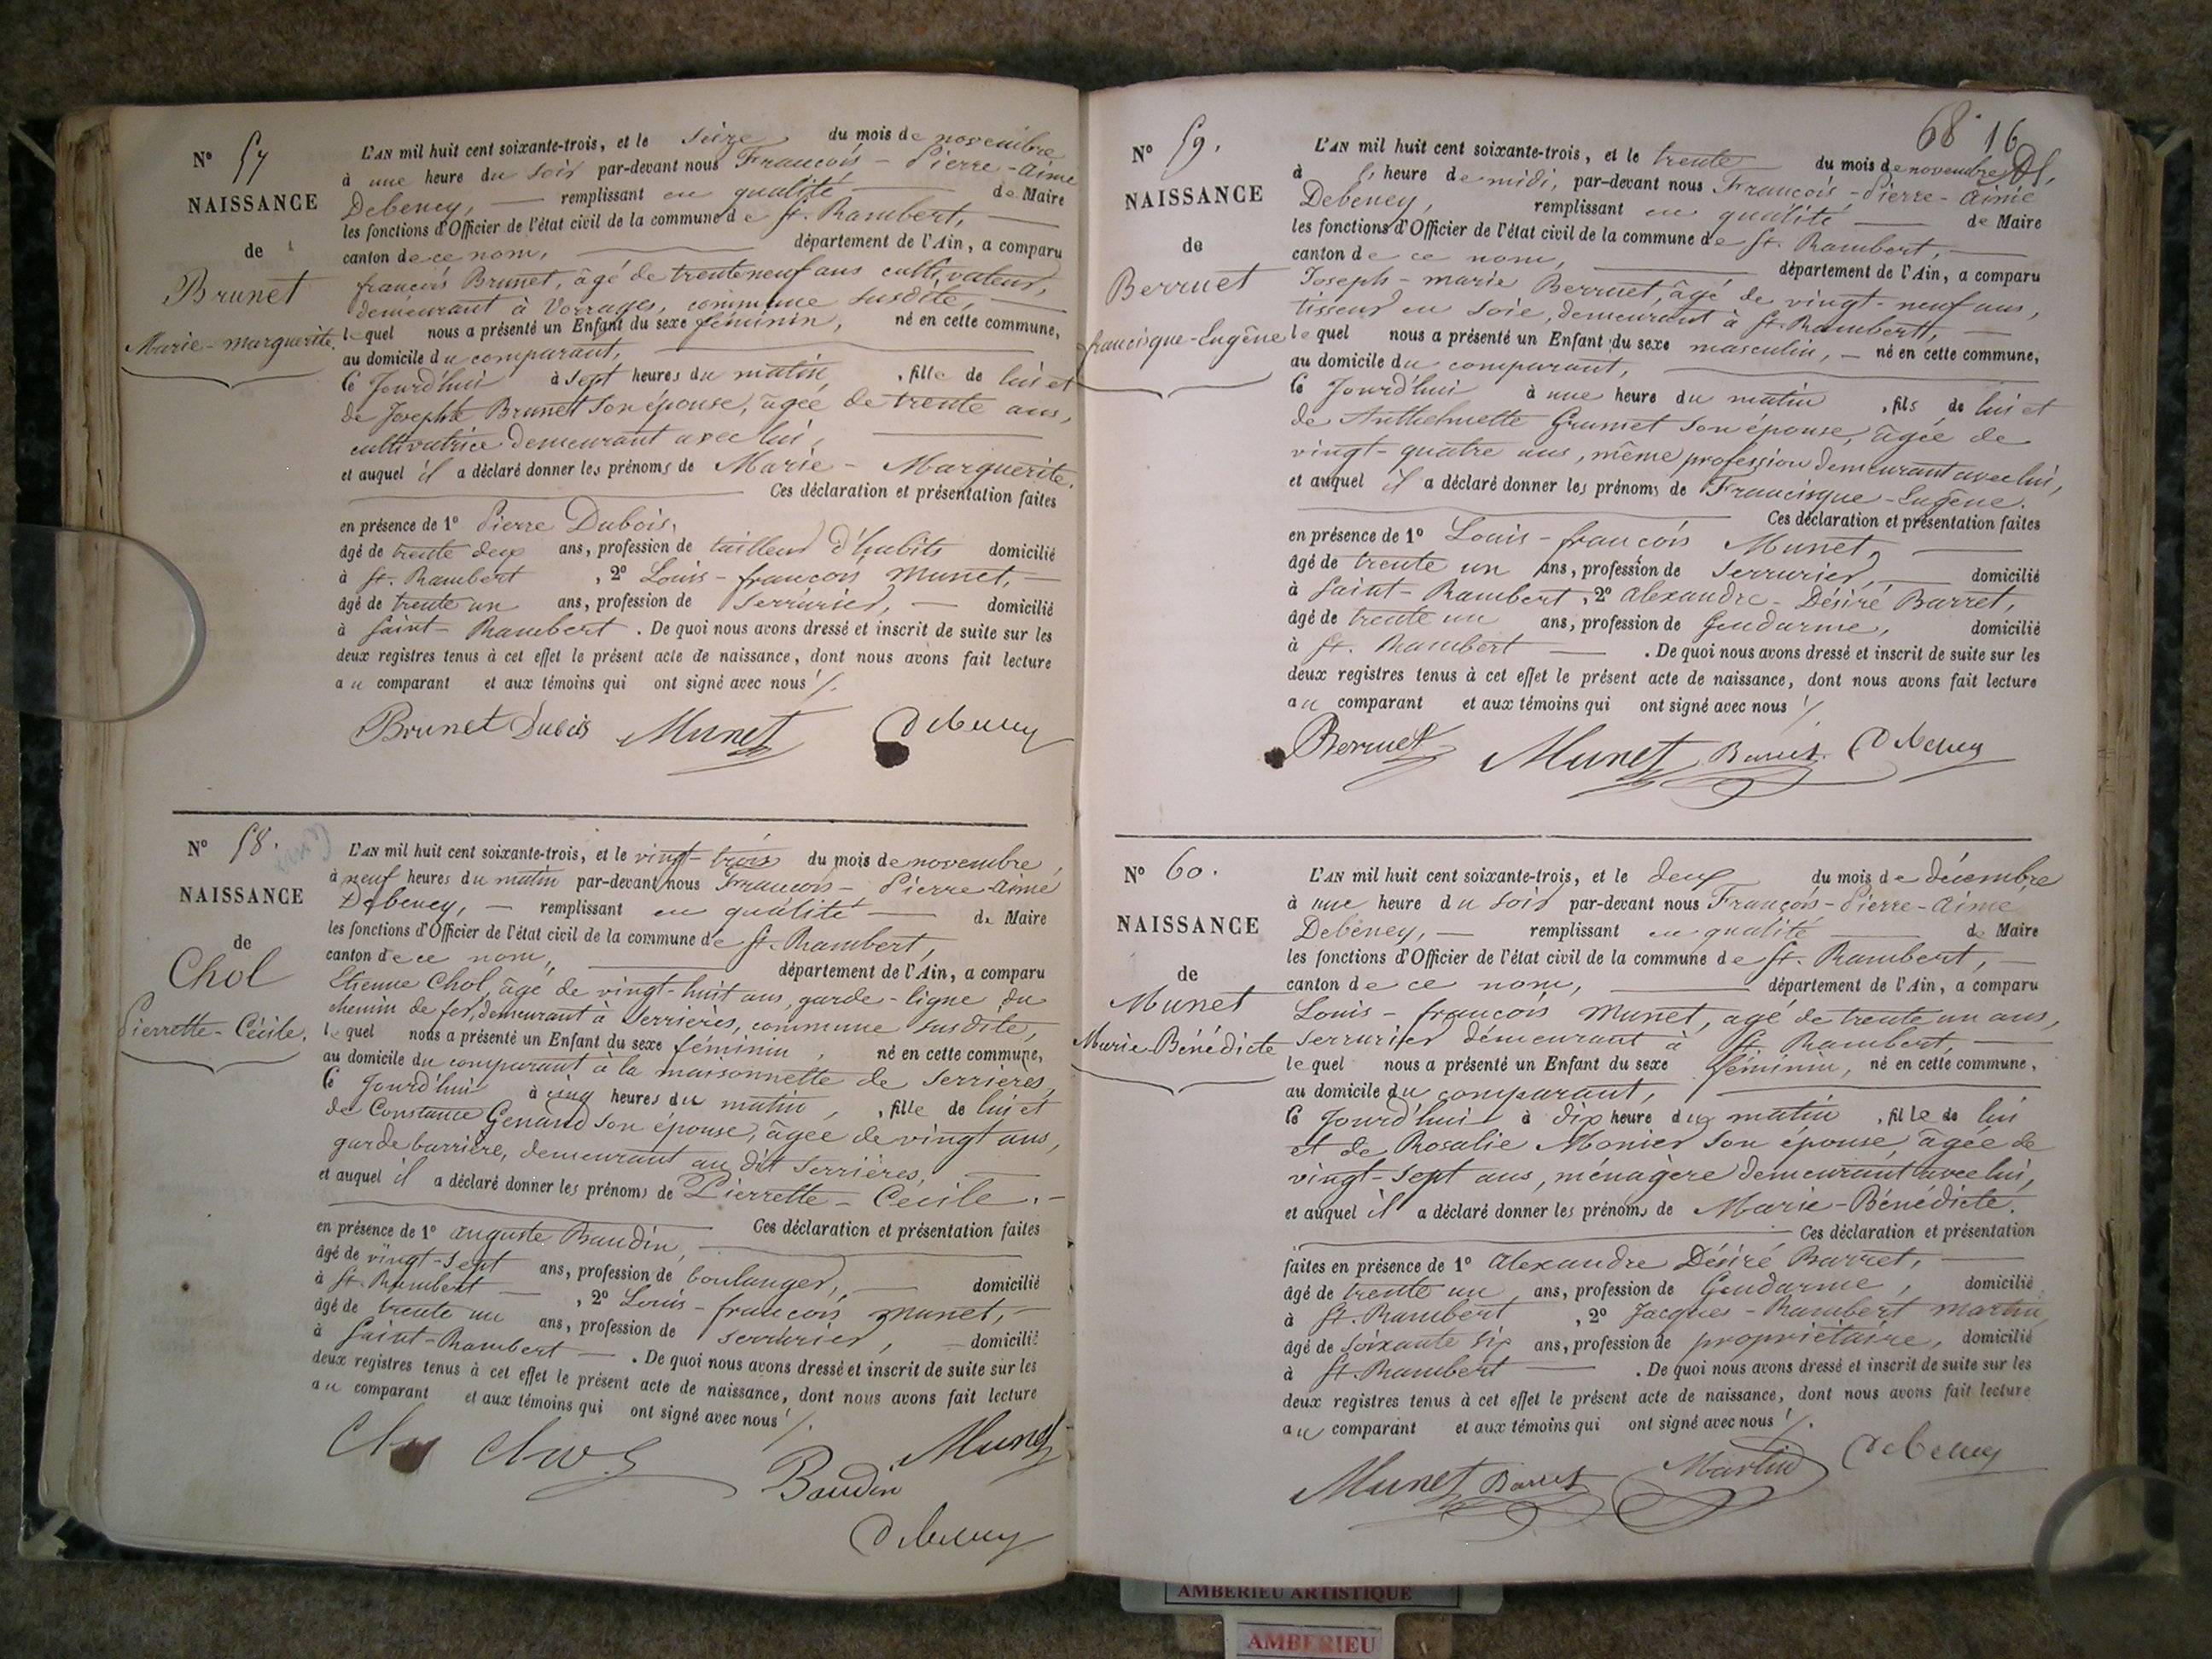 N° 57
NAISSANCE
de
Brunet
Marie-marguerite.
L'AN mil huit cent soixante-trois, et le Seize du mois de novembre
à une heure du soir par-devant nous François-Pierre-Aimé
Debeney, remplissant en qualité de Maire
les fonctions d'Officier de l'état civil de la commune de St. Rambert,
canton de ce nom, département de l'Ain, a comparu
françois Brunet, âgé de trente neuf ans cultivateur,
demeurant à Vorages, commune susdite,
lequel nous a présenté un Enfant du sexe féminin, né en cette commune,
au domicile du comparant,
Ce Jourd'hui à sept heures du matin, fille de lui et
de Josephte Brunet son épouse, âgée de trente ans,
cultivatrice demeurant avec lui,
et auquel il a déclaré donner les prénoms de Marie-Marguerite.
Ces déclaration et présentation faites
en présence de 1° Pierre Dubois,
âgé de trente deux ans, profession de tailleur d'habits domicilié
à St. Rambert, 2° Louis-françois Munet,
âgé de trente un ans, profession de Serrurier, domicilié
à Saint-Rambert. De quoi nous avons dressé et inscrit de suite sur les
deux registres tenus à cet effet le présent acte de naissance, dont nous avons fait lecture
au comparant et aux témoins qui ont signé avec nous
Brunet Dubois Munet Debeney
N° 58.
NAISSANCE
de
Chol
Pierrette-Cécile.
L'AN mil huit cent soixante-trois, et le vingt-trois du mois de novembre,
à neuf heures du matin par-devant nous François-Pierre-Aimé
Debeney, remplissant en qualité de Maire
les fonctions d'Officier de l'état civil de la commune de St. Rambert,
canton de ce nom, département de l'Ain, a comparu
Etienne Chol, âgé de vingt-huit ans, garde-ligne du
chemin de fer, demeurant à Serrières, commune susdite,
lequel nous a présenté un Enfant du sexe féminin, né en cette commune,
au domicile du comparant à la maisonnette de Serrières,
Ce Jourd'hui à cinq heures du matin, fille de lui et
de Constance Genand son épouse, âgée de vingt ans,
garde barrière, demeurant au dit Serrières,
et auquel il a déclaré donner les prénoms de Pierrette-Cécile.
Ces déclaration et présentation faites
en présence de 1° auguste Baudin,
âgé de vingt-sept ans, profession de boulanger, domicilié
à St. Rambert, 2° Louis-françois Munet,
âgé de trente un ans, profession de serrurier, domicilié
à Saint-Rambert. De quoi nous avons dressé et inscrit de suite sur les
deux registres tenus à cet effet le présent acte de naissance, dont nous avons fait lecture
au comparant et aux témoins qui ont signé avec nous
Munet
Baudin
Debeney
68 16
N° 59.
NAISSANCE
de
Berruet
francisque-Eugène
L'AN mil huit cent soixante-trois, et le trente du mois de novembre
à heure de midi, par-devant nous François-Pierre-Aimé
Debeney, remplissant en qualité de Maire
les fonctions d'Officier de l'état civil de la commune de St. Rambert,
canton de ce nom, département de l'Ain, a comparu
Joseph-marie Berruet, âgé de vingt-neuf ans,
tisseur en soie, demeurant à St. Rambert,
lequel nous a présenté un Enfant du sexe masculin, né en cette commune,
au domicile du comparant,
Ce Jourd'hui à une heure du matin, fils de lui et
de Anthelmette Grumet son épouse, âgée de
vingt-quatre ans, même profession demeurant avec lui,
et auquel il a déclaré donner les prénoms de Francisque-Eugène.
Ces déclaration et présentation faites
en présence de 1° Louis-françois Munet,
âgé de trente un ans, profession de serrurier, domicilié
à Saint-Rambert, 2° alexandre-Désiré Barret,
âgé de trente un ans, profession de Gendarme, domicilié
à St. Rambert. De quoi nous avons dressé et inscrit de suite sur les
deux registres tenus à cet effet le présent acte de naissance, dont nous avons fait lecture
au comparant et aux témoins qui ont signé avec nous
Berruet Munet Barret Debeney
N° 60.
NAISSANCE
de
Munet
Marie-Bénédicte
L'AN mil huit cent soixante-trois, et le deux du mois de décembre
à une heure du soir par-devant nous François-Pierre-Aimé
Debeney, remplissant en qualité de Maire
les fonctions d'Officier de l'état civil de la commune de St. Rambert,
canton de ce nom, département de l'Ain, a comparu
Louis-françois Munet, agé de trente un ans,
Serrurier demeurant à St. Rambert,
lequel nous a présenté un Enfant du sexe féminin, né en cette commune,
au domicile du comparant,
Ce Jourd'hui à dix heure du matin, fille de lui
et de Rosalie Monier son épouse, âgée de
vingt-sept ans, ménagère demeurant avec lui,
et auquel il a déclaré donner les prénoms de Marie-Bénédicte.
Ces déclaration et présentation
faites en présence de 1° alexandre Désiré Barret,
âgé de trente un ans, profession de Gendarme, domicilié
à St. Rambert, 2° Jacques-Rambert Martin,
âgé de soixante six ans, profession de propriétaire, domicilié
à St. Rambert. De quoi nous avons dressé et inscrit de suite sur les
deux registres tenus à cet effet le présent acte de naissance, dont nous avons fait lecture
au comparant et aux témoins qui ont signé avec nous
Munet Barret Martin Debeney
AMBERIEU ARTISTIQUE
AMBERIEU